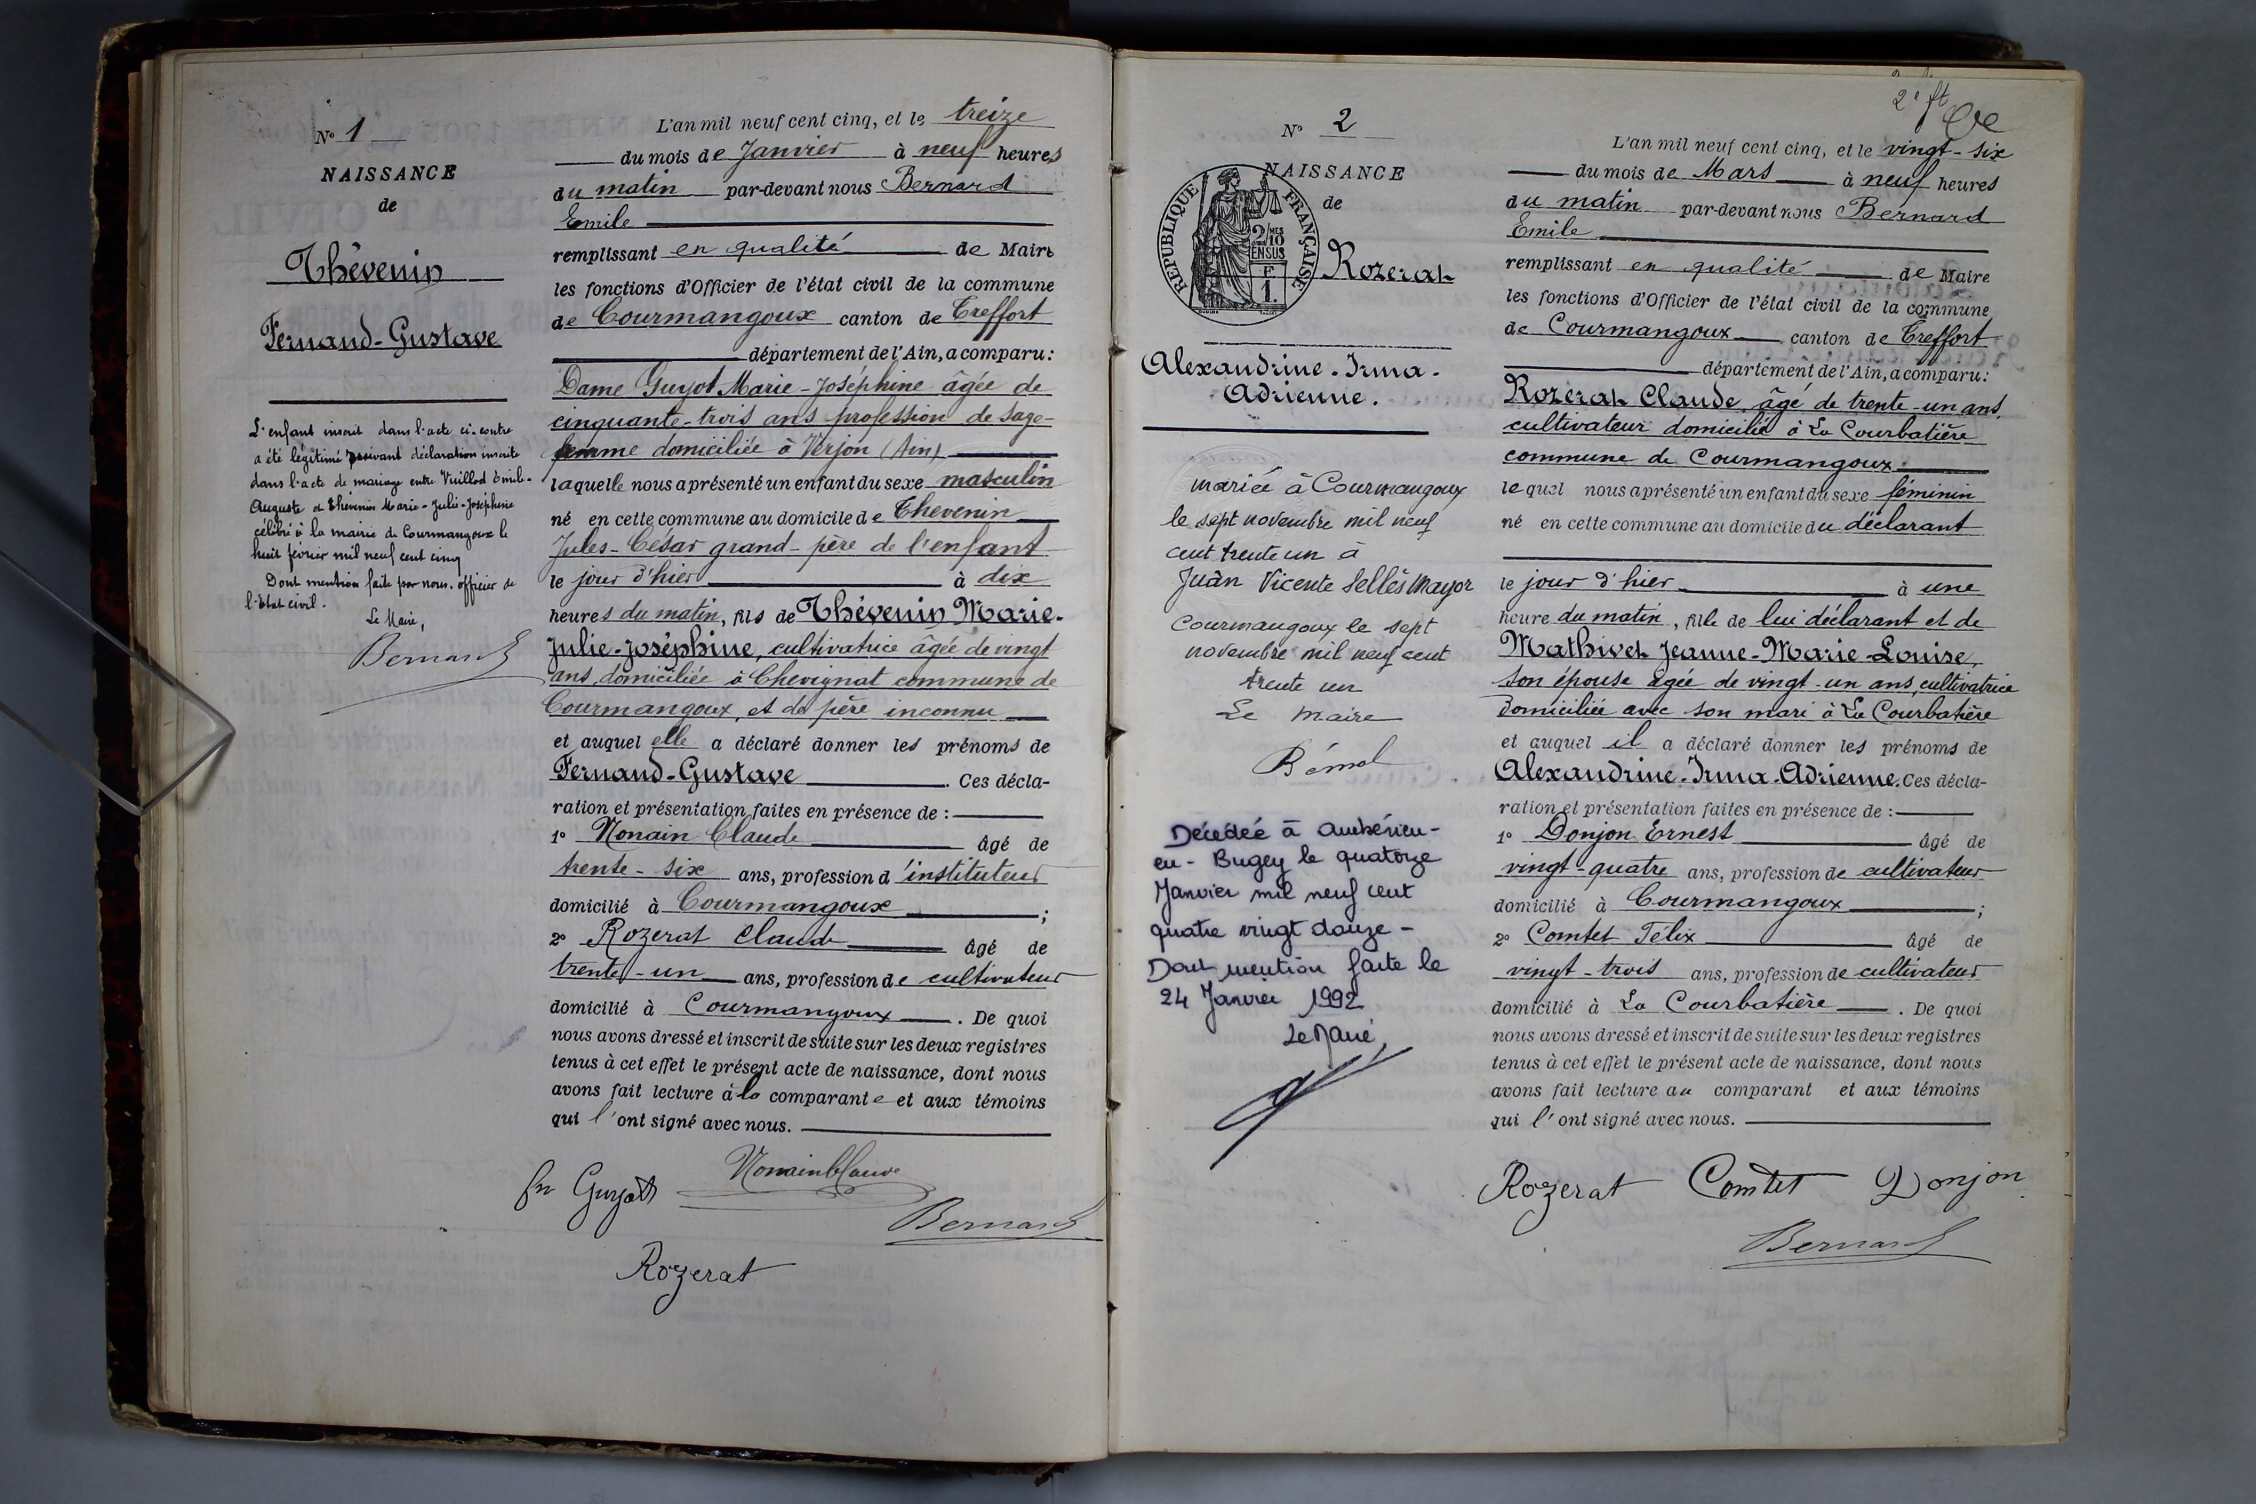 N° 1
NAISSANCE
de
Thévenin
Fernand-Gustave
L'enfant inscrit dans l'acte ci-contre
a été légitimé suivant déclaration inscrite
dans l'acte de mariage entre Vuillod Emile-
Auguste et Thévenin Marie-Julie-Joséphine
célébré à la mairie de Courmangoux le
huit février mil neuf cent cinq
Dont mention faite par nous, officier de
l'Etat civil.
Le Maire,
Bernard
L'an mil neuf cent cinq, et le treize
du mois de Janvier à neuf heures
du matin par-devant nous Bernard
Emile
remplissant en qualité de Maire
les fonctions d'Officier de l'état civil de la commune
de Courmangoux canton de Treffort
département de l'Ain, a comparu:
Dame Guyot Marie-Joséphine âgée de
cinquante-trois ans profession de sage-
femme domiciliée à Verjon (Ain)
laquelle nous a présenté un enfant du sexe masculin
né en cette commune au domicile de Thevenin
Jules-César grand-père de l'enfant
le jour d'hier à dix
heures du matin, fils de Thévenin Marie-
Julie-Joséphine, cultivatrice âgée de vingt
ans, domiciliée à Chevignat commune de
Courmangoux, et de père inconnu
et auquel elle a déclaré donner les prénoms de
Fernand-Gustave. Ces décla-
ration et présentation faites en présence de :
1° Nonain Claude âgé de
trente-six ans, profession d'instituteur
domicilié à Courmangoux ;
2° Rozerat Claude âgé de
trente-un ans, profession de cultivateur
domicilié à Courmangoux. De quoi
nous avons dressé et inscrit de suite sur les deux registres
tenus à cet effet le présent acte de naissance, dont nous
avons fait lecture à la comparante et aux témoins
qui l'ont signé avec nous.
fe Guyot Nonain Claude
Bernard
Rozerat
2e ft
N° 2
NAISSANCE
de
REPUBLIQUE FRANÇAISE
2/10 MES
EN SUS
F.
1.
Rozerat
Alexandrine-Irma-
Adrienne.
mariée à Courmangoux
le sept novembre mil neuf
cent trente un à
Juan Vicente Sellès Mayor
Courmangoux le sept
novembre mil neuf cent
trente un
Le Maire
Décédée à Ambérieu-
en-Bugey le quatorze
Janvier mil neuf cent
quatre vingt douze -
Dont mention faite le
24 Janvier 1992
Le Maire,
L'an mil neuf cent cinq, et le vingt-six
du mois de Mars à neuf heures
du matin par-devant nous Bernard
Emile
remplissant en qualité de Maire
les fonctions d'Officier de l'état civil de la commune
de Courmangoux canton de Treffort
département de l'Ain, a comparu:
Rozerat Claude, âgé de trente-un ans,
cultivateur domicilié à La Courbatière
commune de Courmangoux
lequel nous a présenté un enfant du sexe féminin
né en cette commune au domicile du déclarant
le jour d'hier à une
heure du matin, fille de lui déclarant et de
Mathivet Jeanne-Marie-Louise,
son épouse âgée de vingt-un ans, cultivatrice
domiciliée avec son mari à La Courbatière
et auquel il a déclaré donner les prénoms de
Alexandrine-Irma-Adrienne. Ces décla-
ration et présentation faites en présence de :
1° Donjon Ernest âgé de
vingt-quatre ans, profession de cultivateur
domicilié à Courmangoux ;
2° Comtet Félix âgé de
vingt-trois ans, profession de cultivateur
domicilié à La Courbatière. De quoi
nous avons dressé et inscrit de suite sur les deux registres
tenus à cet effet le présent acte de naissance, dont nous
avons fait lecture au comparant et aux témoins
qui l'ont signé avec nous.
Rozerat Comtet Donjon
Bernard